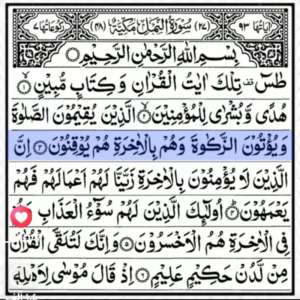 اٰیَاتُهَا ٩٣ (٢٧) سُوْرَةُ النَّمْلِ مَكِّيَّةٌ (٤٨) رُكُوْعَاتُهَا ٧
بِسْمِ اللّٰهِ الرَّحْمٰنِ الرَّحِيْمِ
طٰسٓ تِلْكَ اٰيٰتُ الْقُرْاٰنِ وَ كِتَابٍ مُّبِيْنٍ
هُدًى وَّ بُشْرٰى لِلْمُؤْمِنِيْنَ الَّذِيْنَ يُقِيْمُوْنَ الصَّلٰوةَ
وَ يُؤْتُوْنَ الزَّكٰوةَ وَ هُمْ بِالْاٰخِرَةِ هُمْ يُوْقِنُوْنَ اِنَّ
الَّذِيْنَ لَا يُؤْمِنُوْنَ بِالْاٰخِرَةِ زَيَّنَّا لَهُمْ اَعْمَالَهُمْ فَهُمْ
يَعْمَهُوْنَ اُولٰٓئِكَ الَّذِيْنَ لَهُمْ سُوْٓءُ الْعَذَابِ
فِى الْاٰخِرَةِ هُمُ الْاَخْسَرُوْنَ وَ اِنَّكَ لَتُلَقَّى الْقُرْاٰنَ
مِنْ لَّدُنْ حَكِيْمٍ عَلِيْمٍ اِذْ قَالَ مُوْسٰى لِاَهْلِهٖٓ